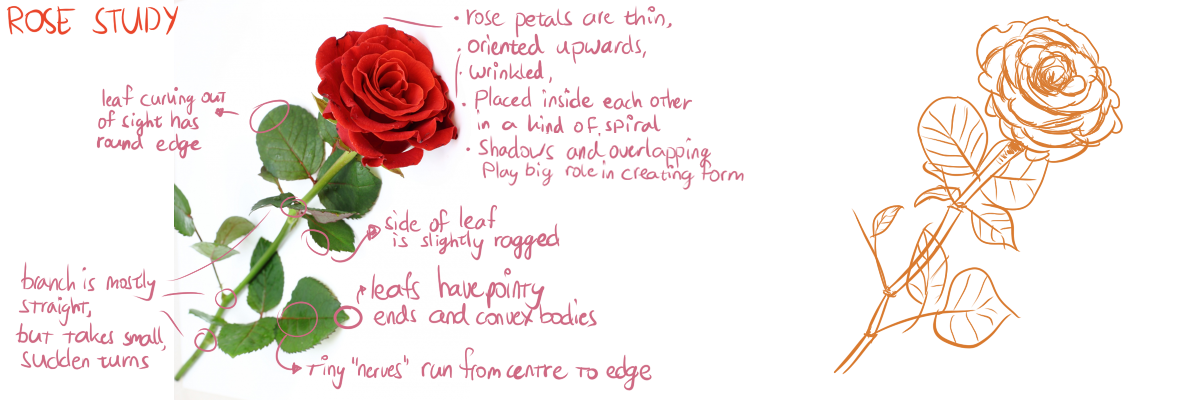 ROSE STUDY
• rose petals are thin,
• oriented upwards,
• wrinkled,
• Placed inside each other
in a kind of spiral
• Shadows and overlapping
Play big role in creating form
leaf curving out
of sight has
round edge
side of leaf
is slightly ragged
branch is mostly
straight,
but takes small,
sudden turns
leafs have pointy
ends and convex bodies
Tiny "nerves" run from centre to edge